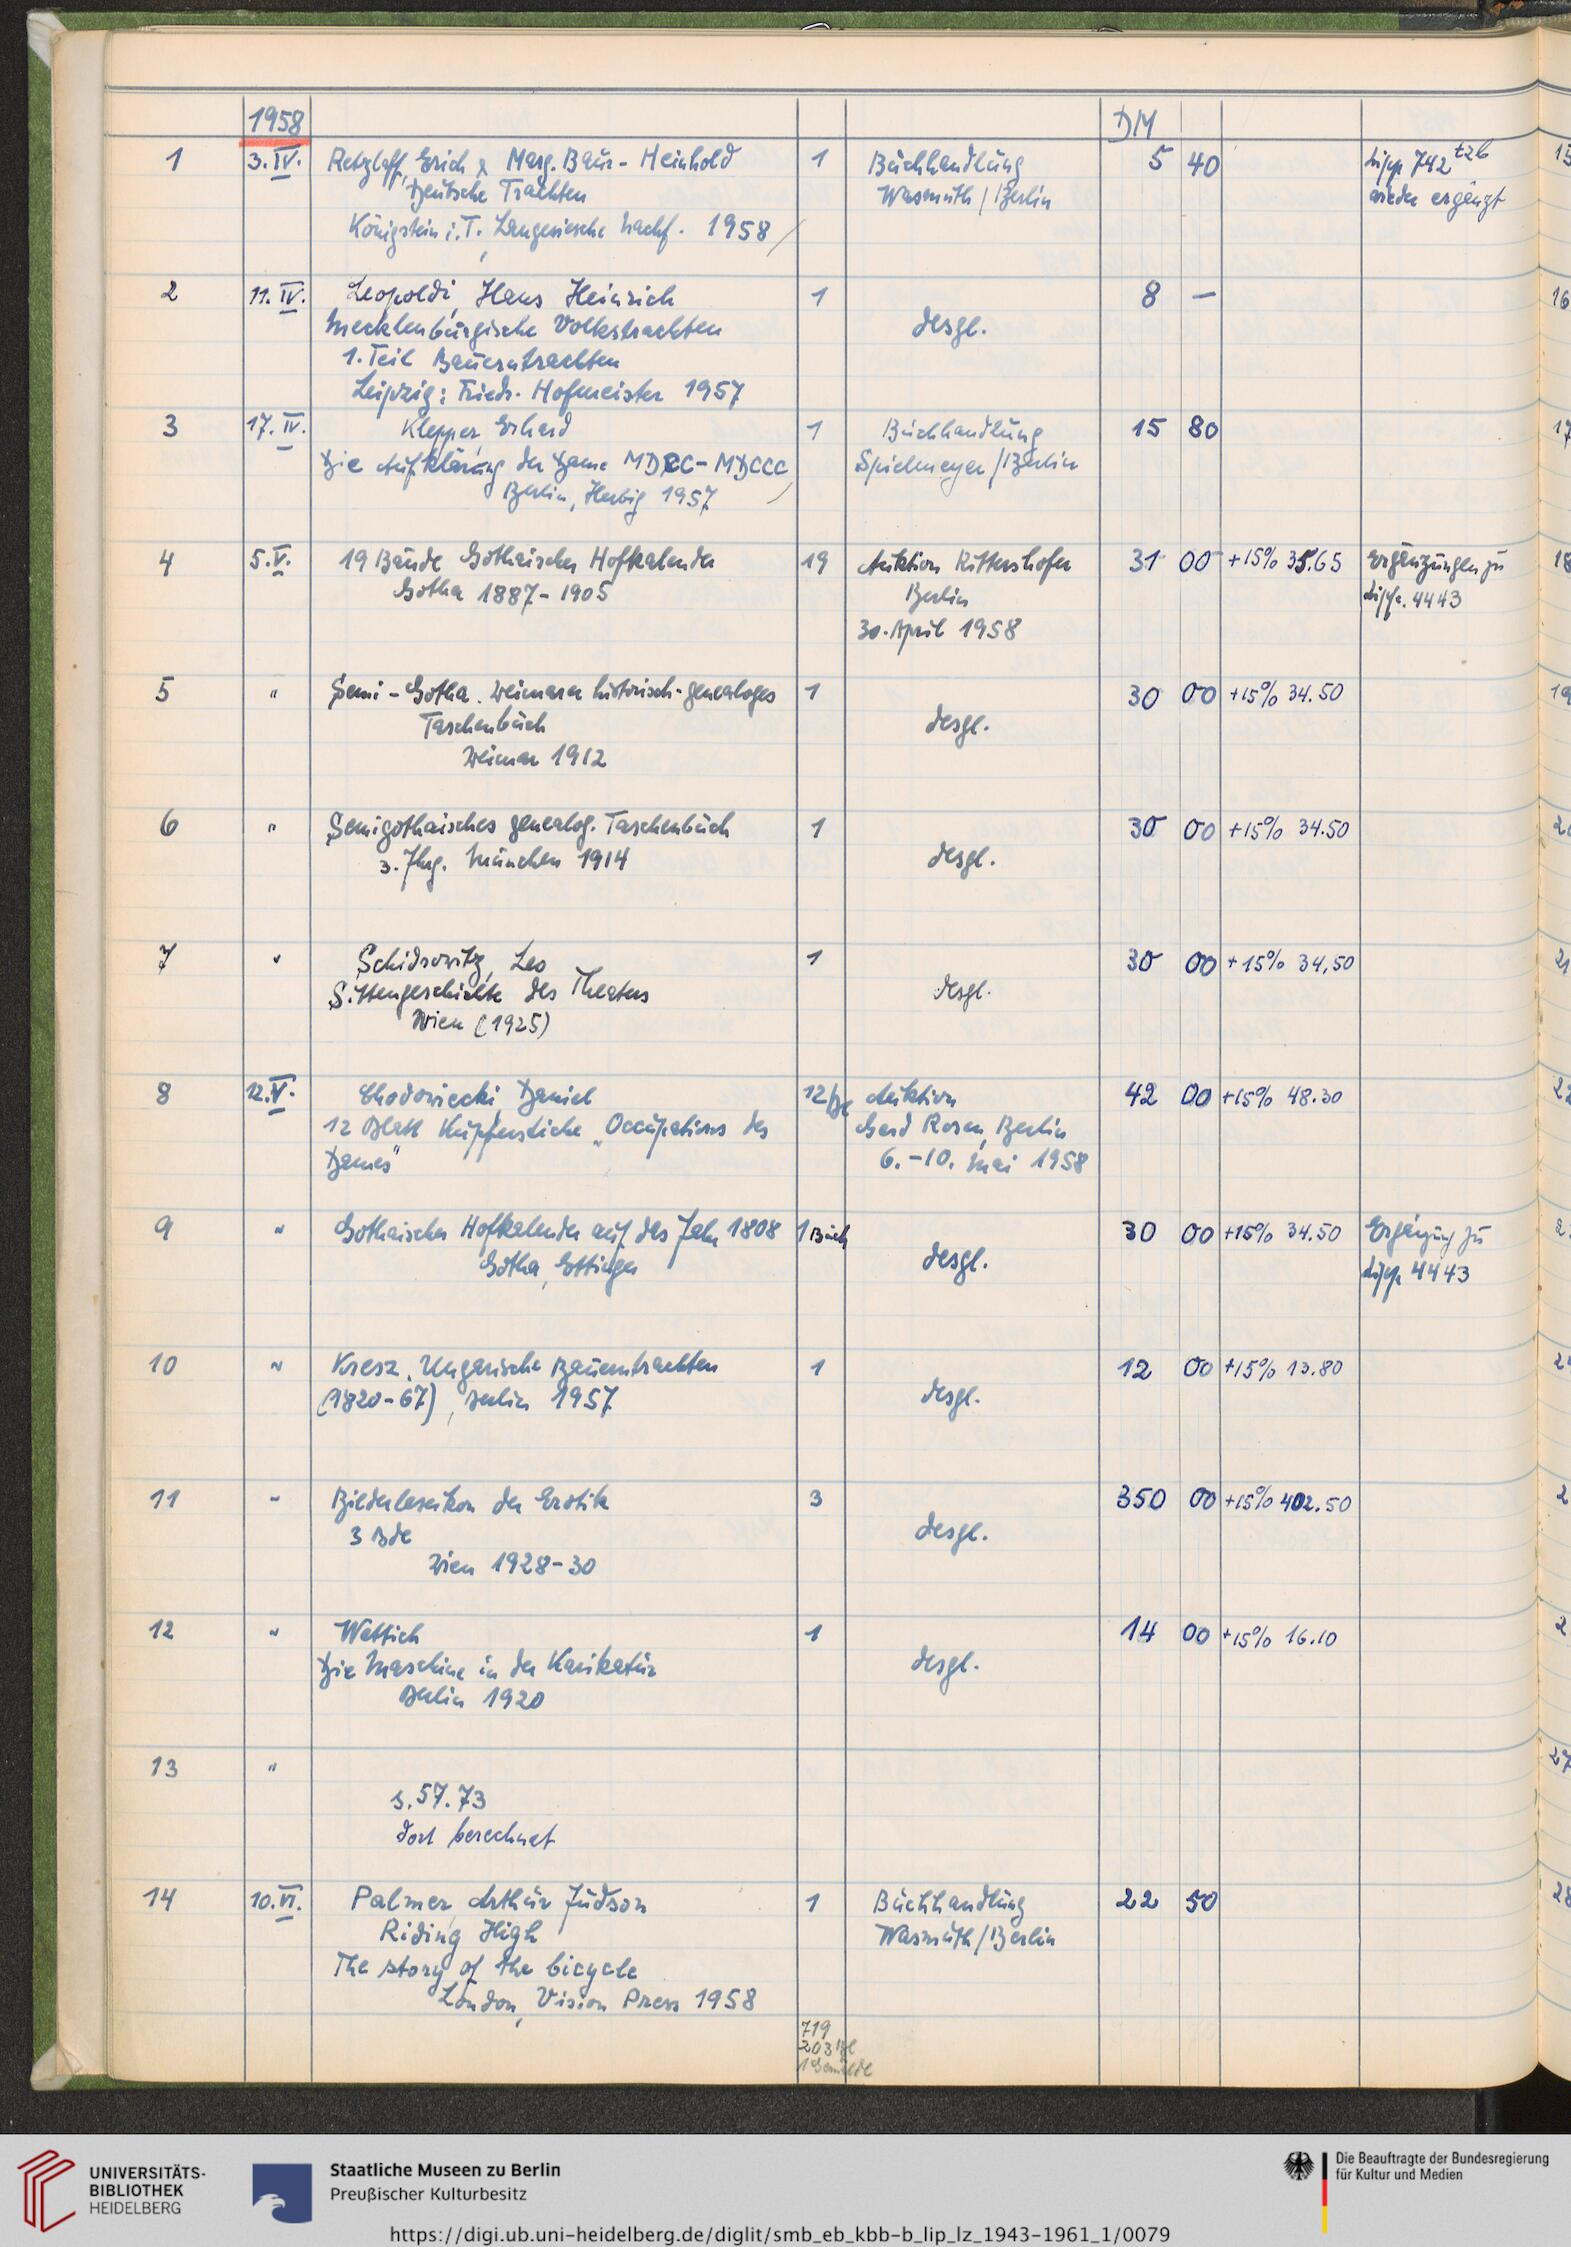 1958 DM
1 3. IV. Retzlaff, Erich & Marg. Baur-Heinhold 1 Buchhandlung 5 40 Lipp 742 tzb
Deutsche Trachten Wasmuth / Berlin wieder ergänzt
Königstein i. T., Langewiesche Nachf. 1958
2 11. IV. Leopoldi, Hans Heinrich 1 8 —
Mecklenburgische Volkstrachten desgl.
1. Teil Bauerntrachten
Leipzig: Friedr. Hofmeister 1957
3 17. IV. Klepper, Erhard 1 Buchhandlung 15 80
Die Aufklärung der Dame MDCC-MDCCC Spielmeyer / Berlin
Berlin, Herbig 1957
4 5. V. 19 Bände Gothaischer Hofkalender 19 Auktion Rittershofer 31 00 +15% 35.65 Ergänzungen zu
Gotha 1887-1905 Berlin Lipp. 4443
30. April 1958
5 " Semi-Gotha. Weimarer historisch-genealoges 1 30 00 +15% 34.50
Taschenbuch desgl.
Weimar 1912
6 " Semigothaisches genealog. Taschenbuch 1 30 00 +15% 34.50
3. Jhrg. München 1914 desgl.
7 " Schidrowitz, Leo 1 30 00 +15% 34,50
Sittengeschichte des Theaters desgl.
Wien (1925)
8 12. V. Chodowiecki, Daniel 12 Bl Auktion 42 00 +15% 48.30
12 Blatt Kupferstiche „Occupations des Gerd Rosen, Berlin
Dames" 6.-10. Mai 1958
9 " Gothaischer Hofkalender auf das Jahr 1808 1 Buch 30 00 +15% 34.50 Ergänzung zu
Gotha, Ettinger desgl. Lipp. 4443
10 " Kresz, Ungarische Bauerntrachten 1 12 00 +15% 13.80
(1820-67), Berlin 1957 desgl.
11 " Bilderlexikon der Erotik 3 350 00 +15% 402.50
3 Bde desgl.
Wien 1928-30
12 " Wettich 1 14 00 +15% 16.10
Die Maschine in der Karikatur desgl.
Berlin 1920
13 "
s. 57.73
dort berechnet
14 10. VI. Palmer, Arthur Judson 1 Buchhandlung 22 50
Riding High Wasmuth / Berlin
The story of the bicycle
London, Vision Press 1958
719
203 Bl
1 Gemälde
UNIVERSITÄTS-
BIBLIOTHEK
HEIDELBERG
Staatliche Museen zu Berlin
Preußischer Kulturbesitz
Die Beauftragte der Bundesregierung
für Kultur und Medien
https://digi.ub.uni-heidelberg.de/diglit/smb_eb_kbb-b_lip_lz_1943-1961_1/0079